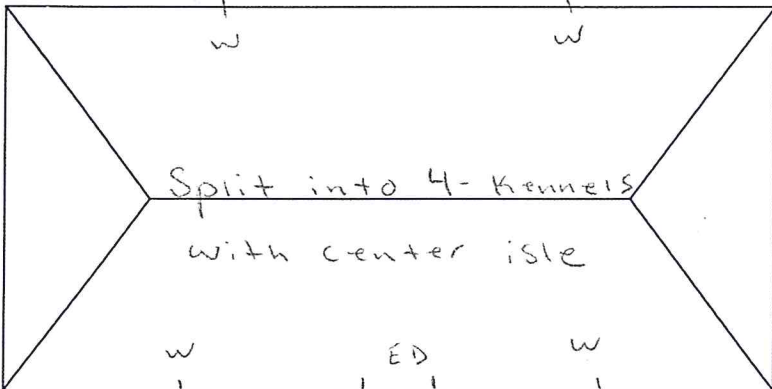 W W
Split into 4- Kennels
with center isle
W ED W